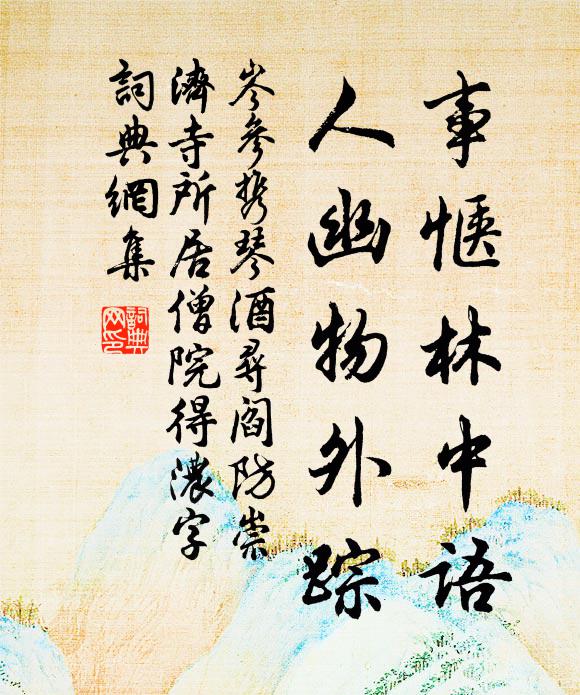 事惬林中語
人幽物外踪
岑參攜琴酒尋閻防崇
濟寺所居僧院得濃字
詞典網集
詞典
网印